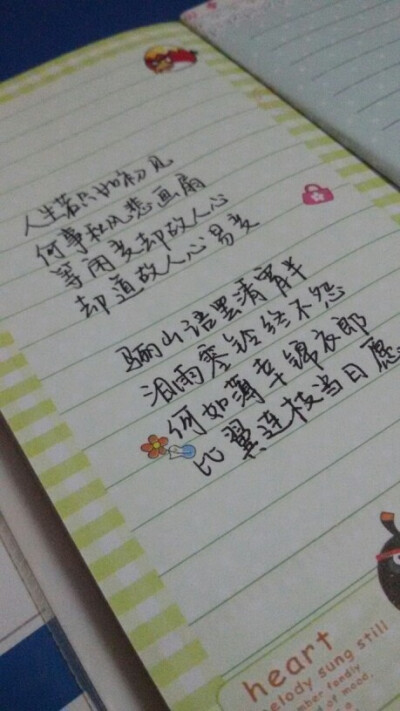 人生若只如初见
何事秋风悲画扇
等闲变却故人心
却道故人心易变
骊山语罢清宵半
泪雨零铃终不怨
何如薄幸锦衣郎
比翼连枝当日愿
heart
melody sung still
of mood,